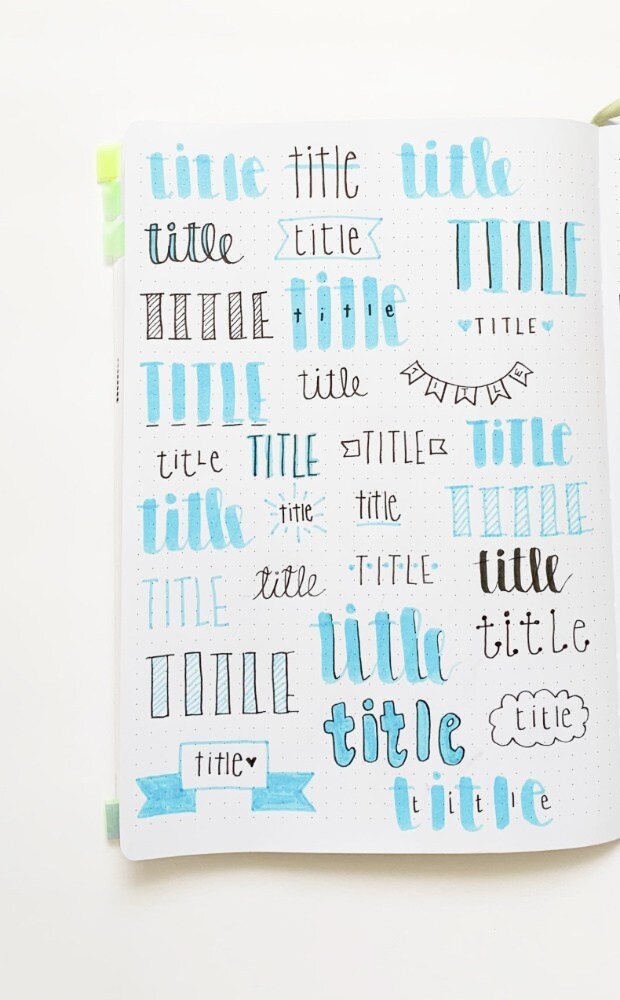 title title title
title title TITLE
TITLE title title TITLE
TITLE title TITLE
title TITLE TITLE TiTLe
title title title TITLE
TITLE title TITLE title
title title
TITLE title title
title title title